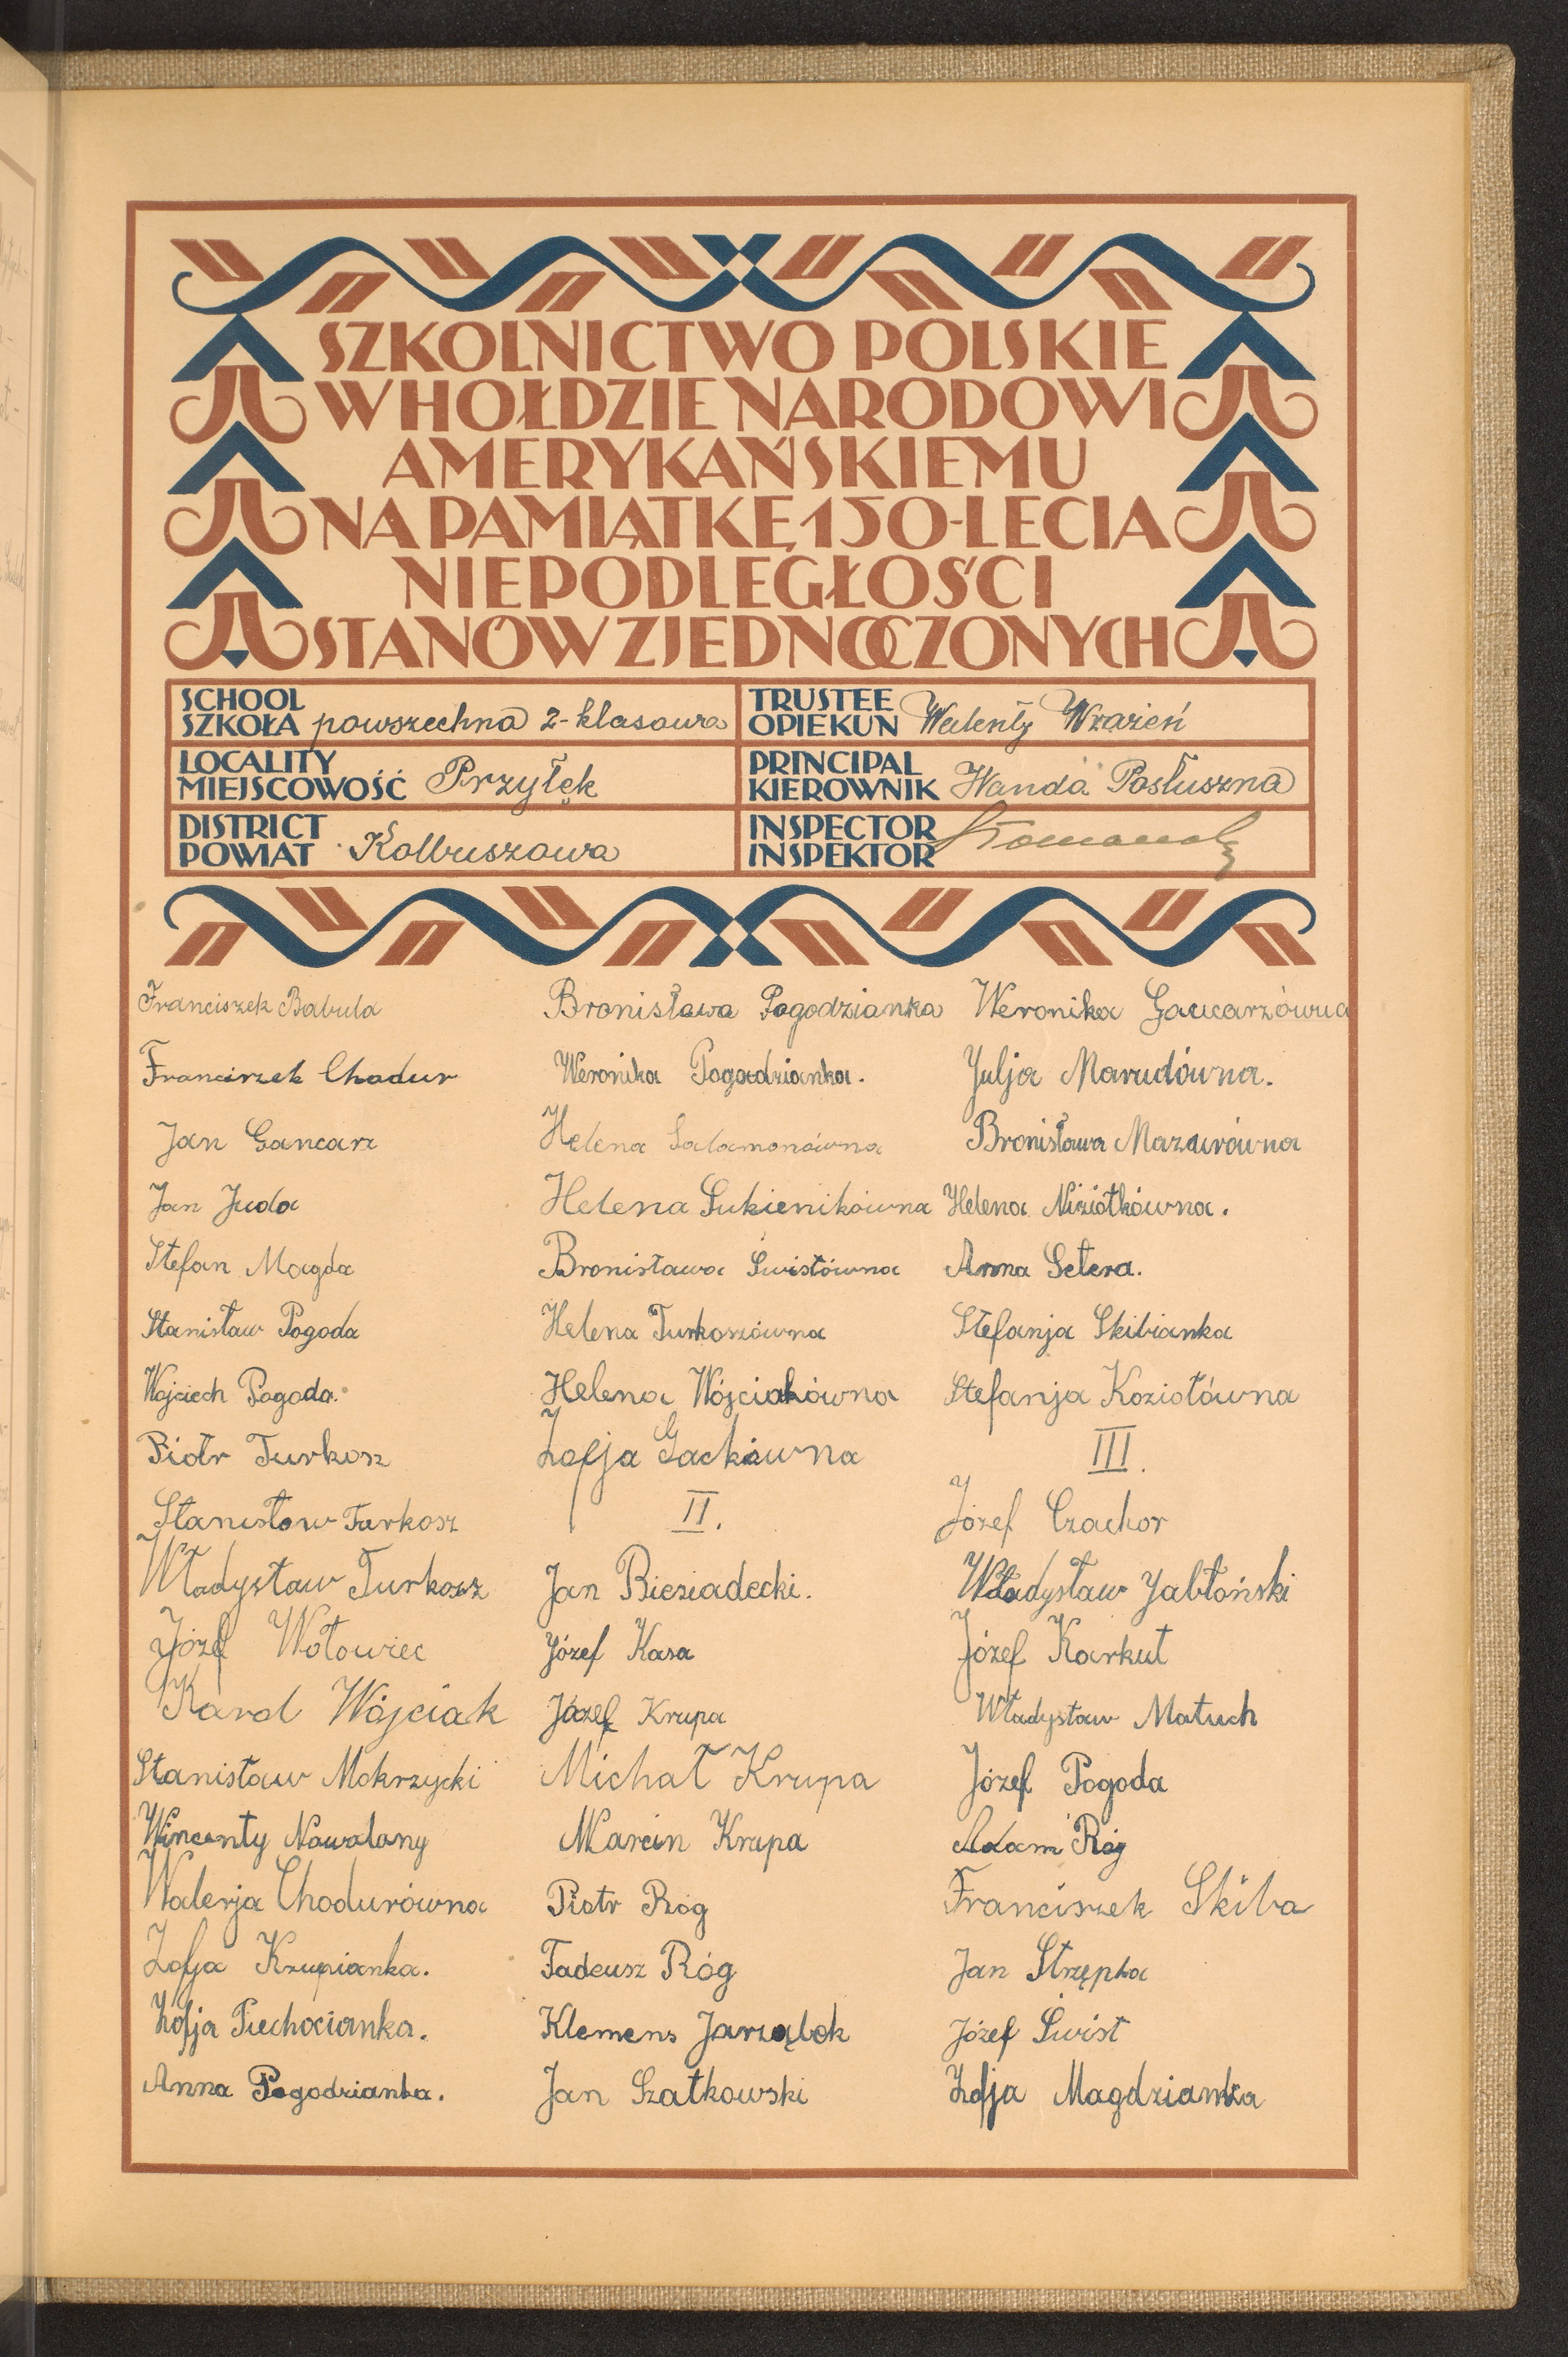 SZKOLNICTWO POLSKIE
W HOŁDZIE NARODOWI
AMERYKAŃSKIEMU
NA PAMIĄTKĘ 150-LECIA
NIEPODLEGŁOŚCI
STANÓW ZJEDNOCZONYCH
SCHOOL
SZKOŁA powszechna 2-klasowa
TRUSTEE
OPIEKUN Walenty Wrażeń
LOCALITY
MIEJSCOWOŚĆ Przyłęk
PRINCIPAL
KIEROWNIK Wanda Posłuszna
DISTRICT
POWIAT Kolbuszowa
INSPECTOR
INSPEKTOR
Franciszek Babula
Franciszek Chodur
Jan Gancarz
Jan Juda
Stefan Magda
Stanisław Pogoda
Wojciech Pogoda.
Piotr Turkosz
Stanisław Turkosz
Władysław Turkosz
Józef Wołowiec
Karol Wójciak
Stanisław Mokrzycki
Wincenty Nawalany
Walerja Chodurówna
Zofja Krupianka.
Zofja Piechocianka.
Anna Pogodzianka.
Bronisława Pogodzianka
Weronika Pogodzianka.
Helena Salamonówna
Helena Sukienikówna
Bronisława Świstówna
Helena Turkoszówna
Helena Wójciakówna
Zofja Gackówna
II.
Jan Biesiadecki.
Józef Kasa
Józef Krupa
Michał Krupa
Marcin Krupa
Piotr Róg
Tadeusz Róg
Klemens Jarząbek
Jan Szatkowski
Weronika Gancarzówna
Julja Marudówna.
Bronisława Mazurówna
Helena Niziołkówna.
Anna Setera.
Stefanja Skibianka
Stefanja Koziołówna
III.
Józef Czachor
Władysław Jabłoński
Józef Karkut
Władysław Matuch
Józef Pogoda
Adam Róg
Franciszek Skiba
Jan Strzępka
Józef Świst
Zofja Magdzianka